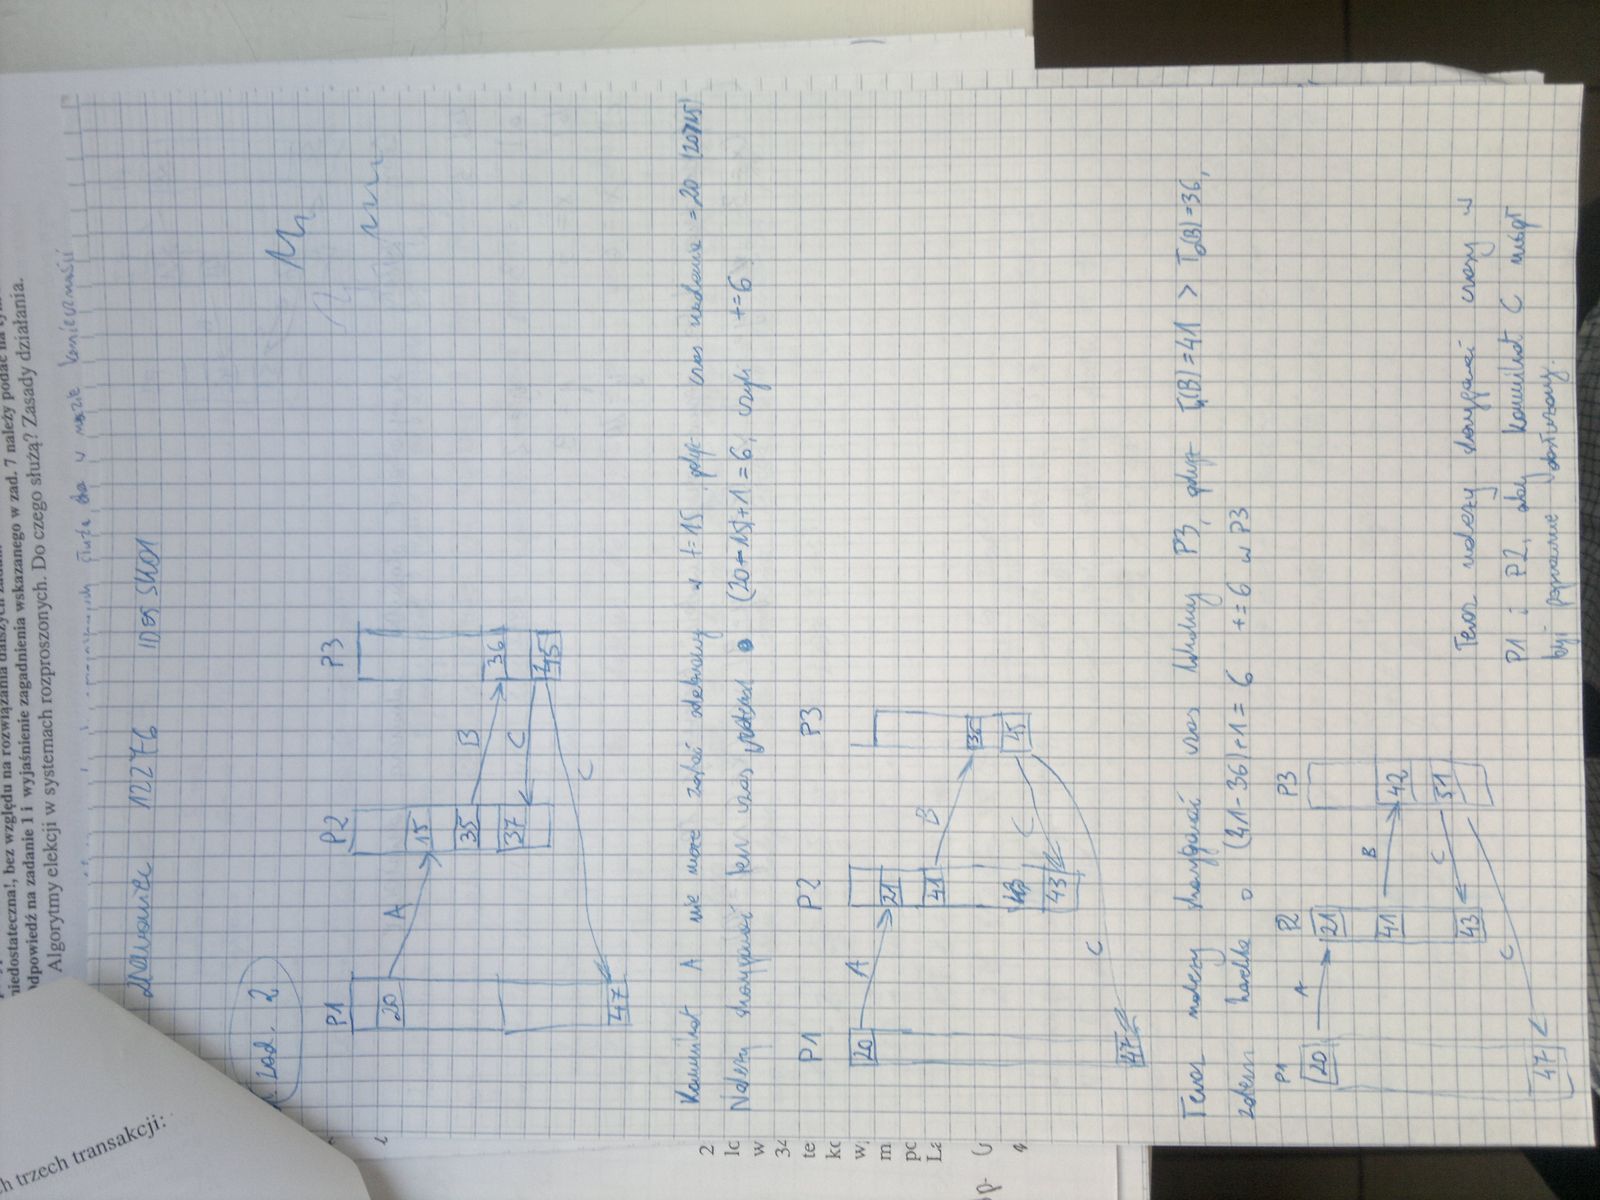 ch trzech transakcji:
niedostateczna!, bez względu na rozwiązania dalszych zadań.
Odpowiedź na zadanie 1 i wyjaśnienie zagadnienia wskazanego w zad. 7 należy podać na tym
Algorytmy elekcji w systemach rozproszonych. Do czego służą? Zasady działania.
służą do w razie konieczności
12276 IDES SK01
zad. 2
P1 P2 P3
20 A 15
35 B 36
37 C 45
C
47
Komunikat A nie może zostać odebrany w t=15, gdyż czas nadania = 20 (20>15)
Należy skorygować ten czas o (20-15)+1=6, czyli +=6
P1 P2 P3
20 A 21
41 B 36
43 C 45
43
C
47
Teraz należy skorygować czas lokalny P3, gdyż (B)=41 > (B)=36,
zatem o (41-36)+1=6 +=6 w P3
P1 P2 P3
20 A 21
41 B 42
43 C 51
C
47
Teraz należy skorygować czasy w
P1 i P2, aby komunikat C mógł
być poprawnie dostarczony.
2
lc
w
34
te
kc
w
m
pc
La